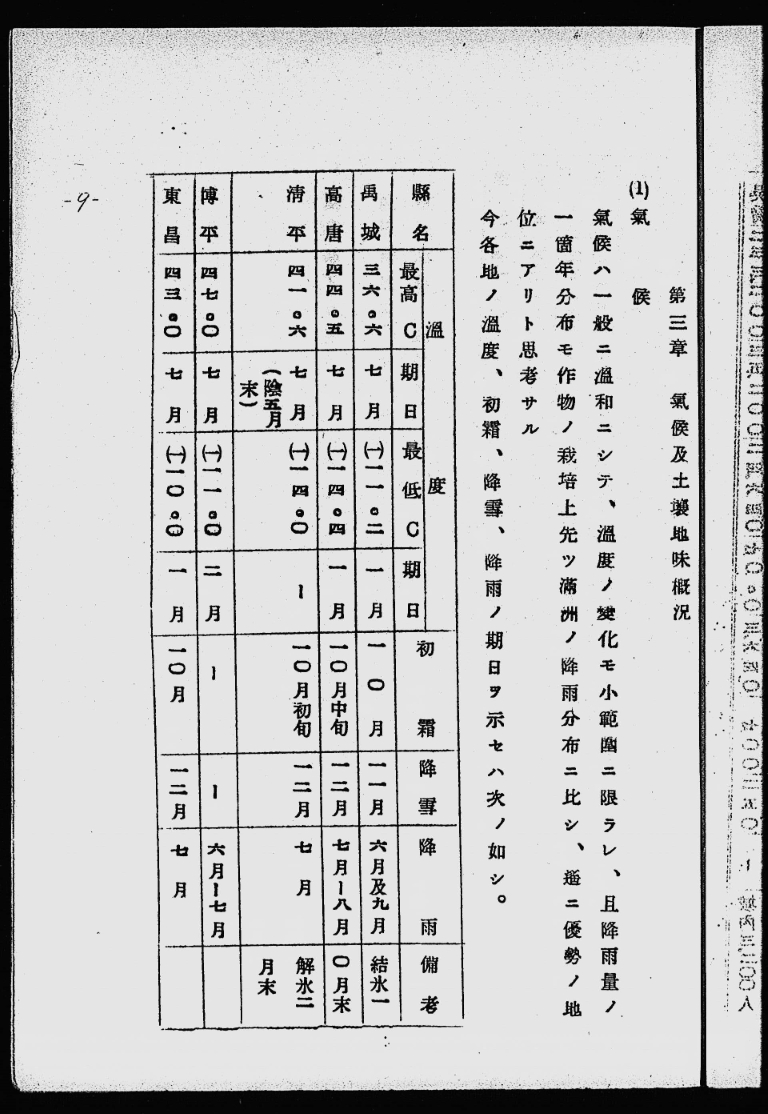 第三章　氣候及土壤地味概況
(1) 氣　候
氣候ハ一般ニ溫和ニシテ、溫度ノ變化モ小範圍ニ限ラレ、且降雨量ノ
一箇年分布モ作物ノ栽培上先ツ滿洲ノ降雨分布ニ比シ、遙ニ優勢ノ地
位ニアリト思考サル
今各地ノ溫度、初霜、降雪、降雨ノ期日ヲ示セハ次ノ如シ。
溫度
縣名 最高C 期日 最低C 期日 初霜 降雪 降雨 備考
禹城 三六。六 七月 (一)一一。二 一月 一〇月 一一月 六月及九月 結氷一
高唐 四四。五 七月 (一)一四。四 一月 一〇月中旬 一二月 七月ー八月 〇月末
清平 四一。六 七月 (一)一四。〇 ー 一〇月初旬 一二月 七月 解氷二
(陰五月 月末
末)
博平 四七。〇 七月 (一)一一。〇 二月 ー ー 六月ー七月
東昌 四三。〇 七月 (一)一〇。〇 一月 一〇月 一二月 七月
-9-